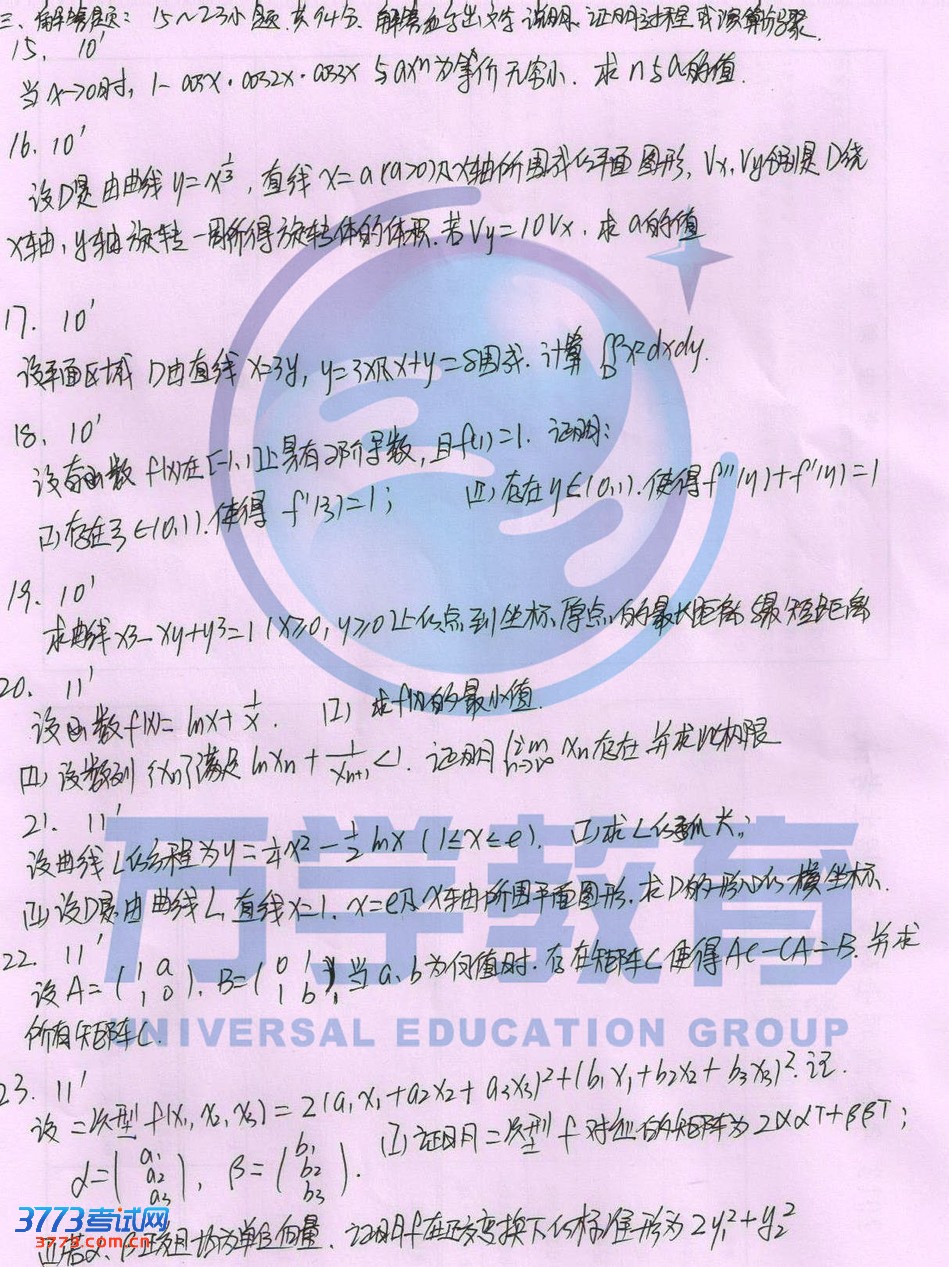 三、解答题: 15~23小题.共94分.解答应写出文字说明、证明过程或演算步骤.
15. 10'
当x→0时, 1-cosx·cos2x·cos3x 与axⁿ为等价无穷小. 求n与a的值.
16. 10'
设D是由曲线y=x^{1/3}, 直线x=a(a>0)及x轴所围成的平面图形, Vx,Vy分别是D绕
x轴,y轴旋转一周所得旋转体的体积.若Vy=10Vx, 求a的值
17. 10'
设平面区域D由直线x=3y, y=3x及x+y=8围成. 计算∬_D x²dxdy.
18. 10'
设奇函数f(x)在[-1,1]上具有2阶导数,且f(1)=1. 证明:
(I)存在ξ∈(0,1).使得 f'(ξ)=1; (II)存在η∈(0,1).使得f''(η)+f'(η)=1
19. 10'
求曲线x³-xy+y³=1(x≥0,y≥0)上的点到坐标原点的最长距离与最短距离
20. 11'
设函数f(x)=lnx+1/x. (I) 求f(x)的最小值.
(II)设数列{xn}满足 lnxn+1/x_{n+1}<1. 证明lim_{n→∞} xn存在并求此极限
21. 11'
设曲线L的方程为y=1/4x²-1/2lnx (1≤x≤e). (I)求L的弧长;
(II)设D是由曲线L,直线x=1, x=e及x轴所围平面图形.求D的形心的横坐标.
22. 11'
设A=(1 a; 1 0), B=(0 1; 1 b), 当a、b为何值时.存在矩阵C使得AC-CA=B.并求
所有矩阵C.
万学教育
UNIVERSAL EDUCATION GROUP
23. 11'
设二次型f(x₁,x₂,x₃)=2(a₁x₁+a₂x₂+a₃x₃)²+(b₁x₁+b₂x₂+b₃x₃)².记.
α=(a₁; a₂; a₃), β=(b₁; b₂; b₃). (I)证明二次型f对应的矩阵为2αα^T+ββ^T;
(II)若α、β正交且均为单位向量.证明f在正交变换下的标准形为2y₁²+y₂²
3773考试网
3773.com.cn